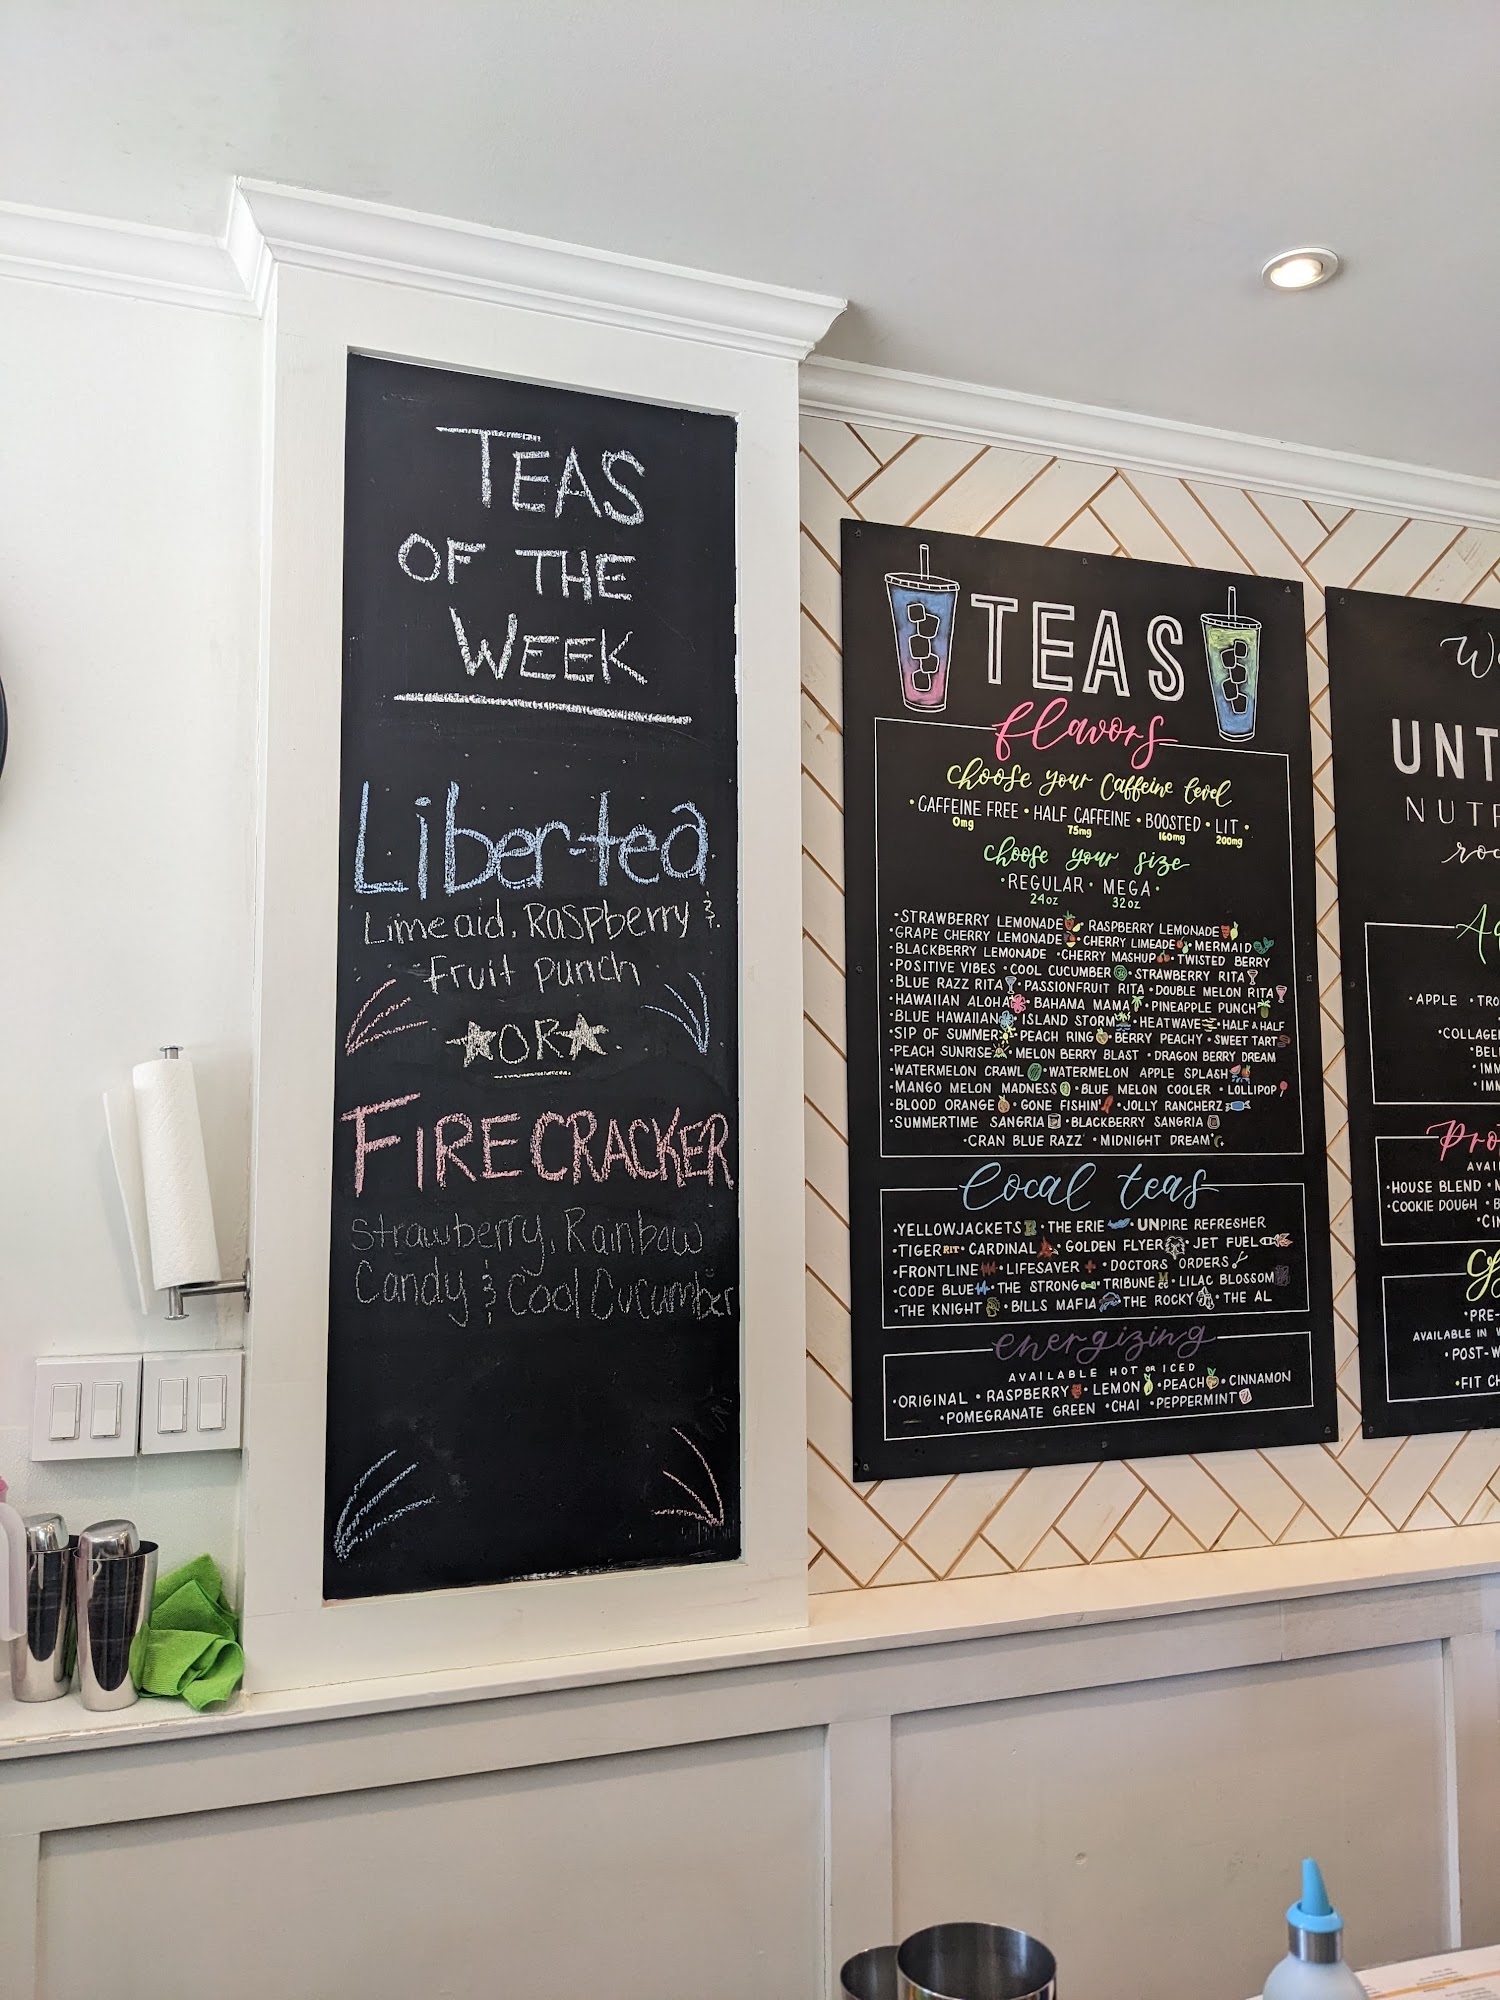 TEAS
OF THE
WEEK
Liber-tea
Limeaid, Raspberry &
fruit punch
OR
FIRECRACKER
Strawberry, Rainbow
Candy & Cool Cucumber
TEAS
flavors
choose your caffeine level
• CAFFEINE FREE • HALF CAFFEINE • BOOSTED • LIT •
0mg 75mg 160mg 200mg
choose your size
• REGULAR • MEGA •
24oz 32oz
• STRAWBERRY LEMONADE • RASPBERRY LEMONADE
• GRAPE CHERRY LEMONADE • CHERRY LIMEADE • MERMAID
• BLACKBERRY LEMONADE • CHERRY MASHUP • TWISTED BERRY
• POSITIVE VIBES • COOL CUCUMBER • STRAWBERRY RITA
• BLUE RAZZ RITA • PASSIONFRUIT RITA • DOUBLE MELON RITA
• HAWAIIAN ALOHA • BAHAMA MAMA • PINEAPPLE PUNCH
• BLUE HAWAIIAN • ISLAND STORM • HEATWAVE • HALF & HALF
• SIP OF SUMMER • PEACH RING • BERRY PEACHY • SWEET TART
• PEACH SUNRISE • MELON BERRY BLAST • DRAGON BERRY DREAM
• WATERMELON CRAWL • WATERMELON APPLE SPLASH
• MANGO MELON MADNESS • BLUE MELON COOLER • LOLLIPOP
• BLOOD ORANGE • GONE FISHIN' • JOLLY RANCHERZ
• SUMMERTIME SANGRIA • BLACKBERRY SANGRIA
• CRAN BLUE RAZZ • MIDNIGHT DREAM
local teas
• YELLOWJACKETS • THE ERIE • UNPIRE REFRESHER
• TIGER RIT • CARDINAL • GOLDEN FLYER • JET FUEL
• FRONTLINE • LIFESAVER • DOCTORS ORDERS
• CODE BLUE • THE STRONG • TRIBUNE • LILAC BLOSSOM
• THE KNIGHT • BILLS MAFIA • THE ROCKY • THE AL
energizing
AVAILABLE HOT OR ICED
• ORIGINAL • RASPBERRY • LEMON • PEACH • CINNAMON
• POMEGRANATE GREEN • CHAI • PEPPERMINT
UNT
NUTR
• APPLE • TRO
• COLLAGE
• BEL
• IMM
• IMM
Pro
AVAI
• HOUSE BLEND •
• COOKIE DOUGH • B
• CIN
• PRE-
AVAILABLE IN
• POST-W
• FIT CH